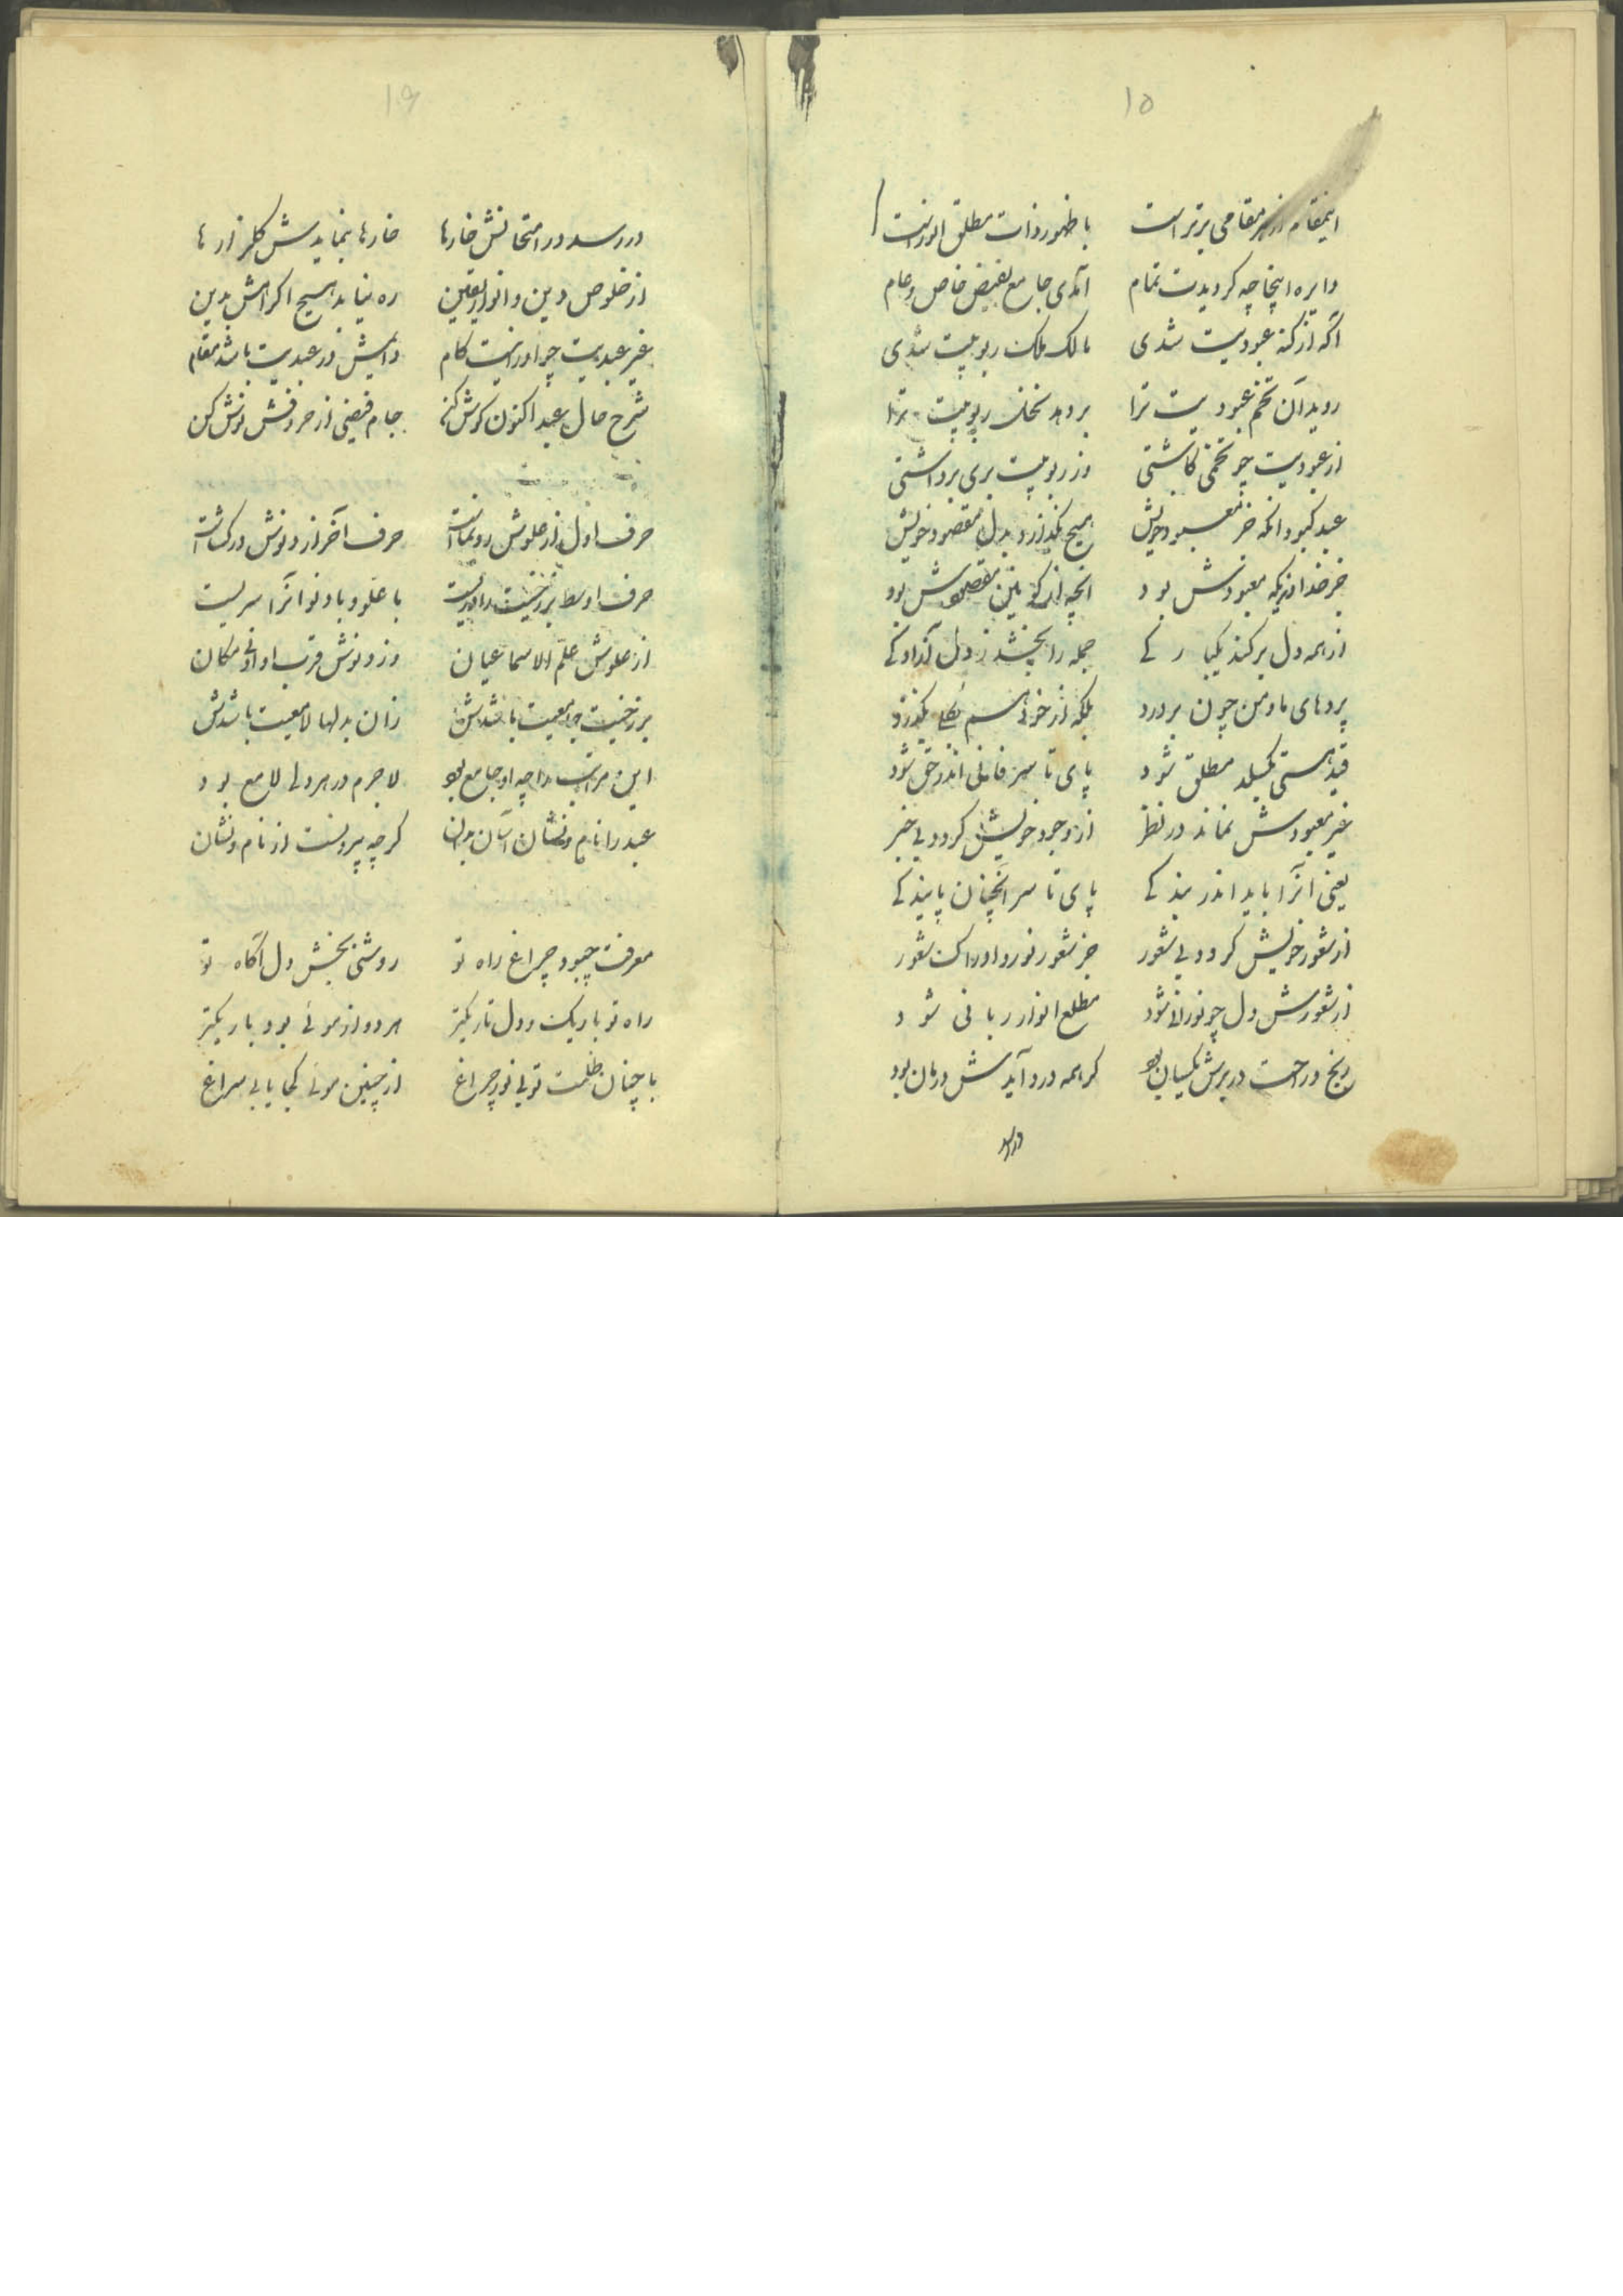 ۱۵
اینمقام از هر مقامی برتر است با ظهور ذات مطلق انور است
دایره اینجا چه گردیدت تمام آمدی جامع بفیض خاص و عام
آگه از کنه عبودیت شدی مالک ملک ربوبیت شدی
روید آن تخم عبودیت ترا بردهد نخل ربوبیت ترا
از عبودیت چو تخمی کاشتی وز ربوبیت بری برداشتی
عبد کبود انکه جز معبود خویش هیچ نگذارد بدل مقصود خویش
جز خداوندیکه معبودش بود انچه از کونین مقصودش بود
از همه دل برکند یکبارکے جمله را بخشد ز دل آزادکے
پردهای ما و من چون بردرد بلکه از خود هم بکلے بگذرد
قید هستی بگسلد مطلق شود پای تا سر فانی اندر حق شود
غیر معبودش نماند در نظر از وجود خویش گردد بی خبر
یعنی انرا باید اندر بندکے پای تا سر انچنان پایندکے
از شعور خویش گردد بی شعور جز شعور نور و ادراک شعور
از شعورش دل چو نورانی شود مطلع انوار ربانی شود
رنج و راحت در برش یکسان بود گر همه درد آیدش درمان بود
در رسد
۱۶
در رسد در امتحانش خارها خارها بنمایدش گلزارها
از خلوص دین و انوار یقین ره نیابد هیچ اکراهش بدین
غیر عبدیت چو او را نیست کام دایمش در عبدیت باشد مقام
شرح حال عبد اکنون گوش کن جام فیضی از حروفش نوش کن
حرف اول از علوش رونماست حرف آخر از دنوش درکشاست
حرف اوسط برزخیت را دریست با علو و با دنو انرا سریست
از علوش علّم الاسما عیان وز دنوش قرب او ادنی مکان
برزخیت جامعیت باشدش زان بدلها لامعیت باشدش
این مراتب را چه او جامع بود لاجرم در هر دلی لامع بود
عبد را نام و نشان آسان بدان گرچه بیرونست از نام و نشان
معرفت چبود چراغ راه تو روشنی بخش دل آگاه تو
راه تو باریک و دل تاریکتر هر دو از موئی بود باریکتر
با چنان ظلمت تو بی نور چراغ از چنین موئی کجا یابی سراغ